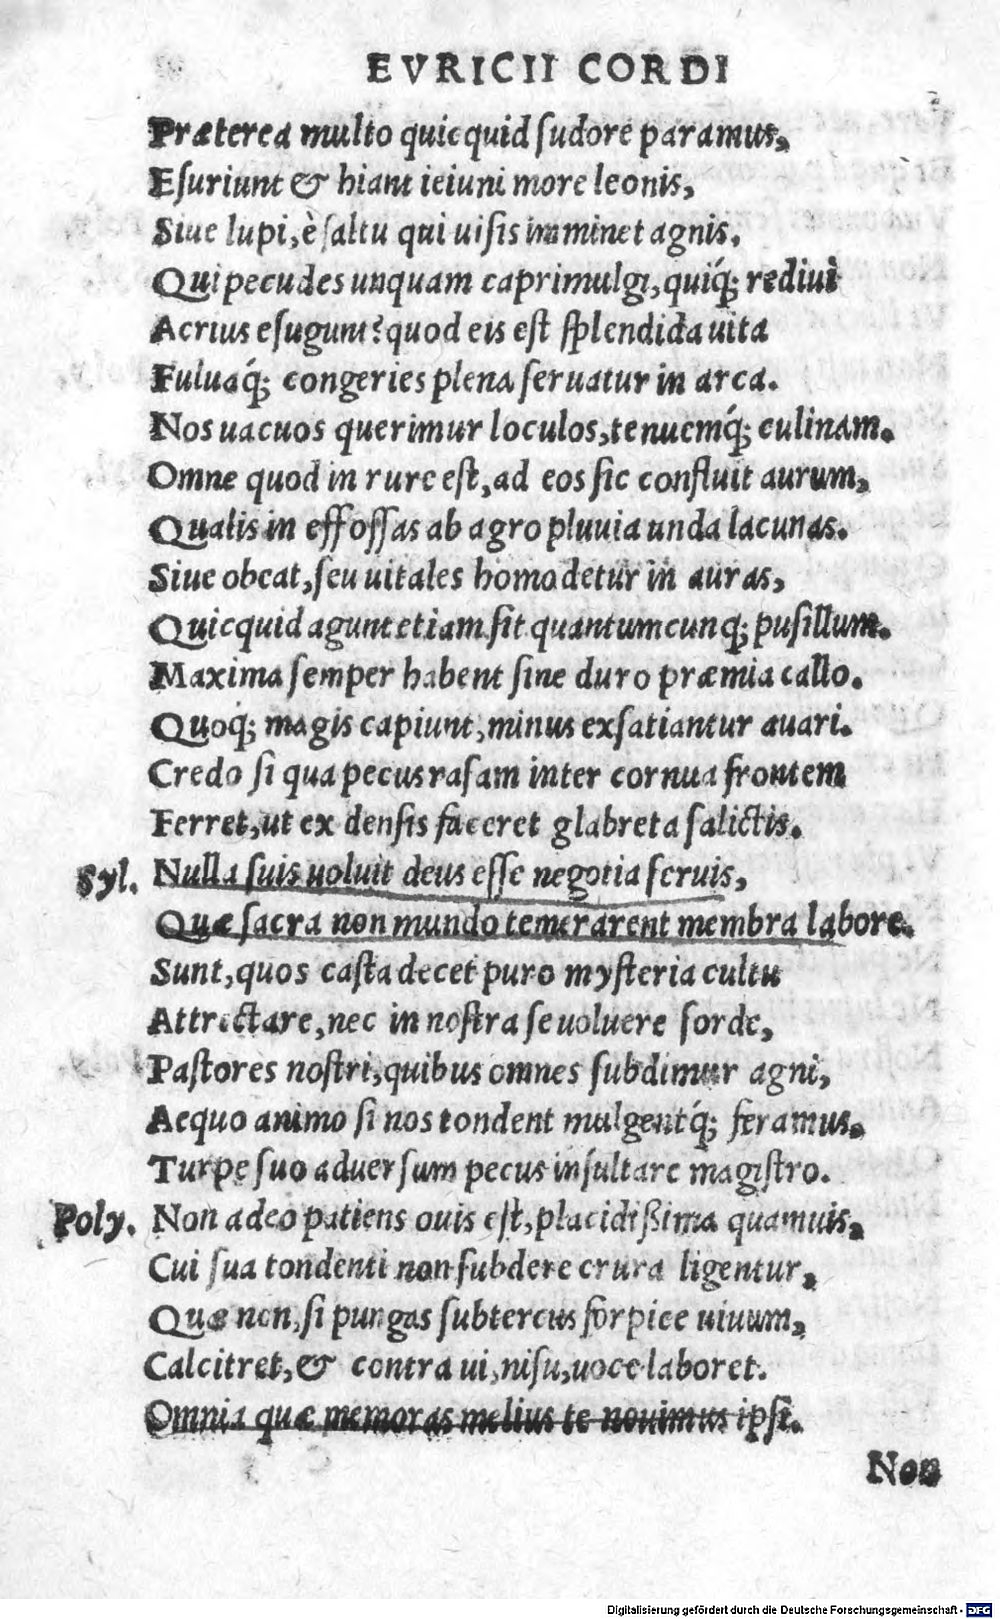 EVRICII CORDI
Præterea multo quicquid ſudore paramus,
Eſuriunt & hiant ieiuni more leonis,
Siue lupi, è ſaltu qui uiſis imminet agnis.
Qui pecudes unquam caprimulgi, quiq́; rediui
Acrius eſugunt? quod eis eſt ſplendida uita
Fuluaq́; congeries plena ſeruatur in arca.
Nos uacuos querimur loculos, tenuemq́; culinam.
Omne quod in rure eſt, ad eos ſic confluit aurum,
Qualis in effoſſas ab agro pluuia unda lacunas.
Siue obeat, ſeu uitales homo detur in auras,
Quicquid agunt etiam ſit quantumcunq; puſillum.
Maxima ſemper habent ſine duro præmia callo.
Quoq; magis capiunt, minus exſatiantur auari.
Credo ſi qua pecus raſam inter cornua frontem
Ferret, ut ex denſis faceret glabreta ſalictis.
Syl. Nulla ſuis uoluit deus eſſe negotia ſeruis,
Quæ ſacra non mundo temerarent membra labore.
Sunt, quos caſta decet puro myſteria cultu
Attrectare, nec in noſtra ſe uoluere ſorde,
Paſtores noſtri, quibus omnes ſubdimur agni,
Aequo animo ſi nos tondent mulgentq́; feramus.
Turpe ſuo aduerſum pecus inſultare magiſtro.
Poly. Non adeo patiens ouis eſt, placidiſſima quamuis,
Cui ſua tondenti non ſubdere crura ligentur,
Quæ non, ſi pungas ſubtercus forpice uiuum,
Calcitret, & contra ui, niſu, uoce laboret.
Omnia quæ memoras melius te nouimus ipſi.
Non
Digitalisierung gefördert durch die Deutsche Forschungsgemeinschaft - DFG